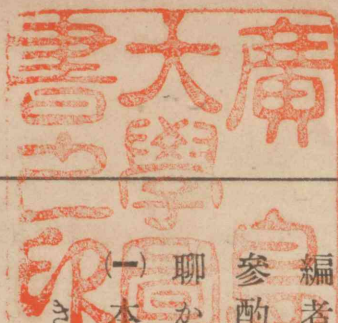 廣島
大學圖
書之印
編者
參酌
聊か
(一)本
き